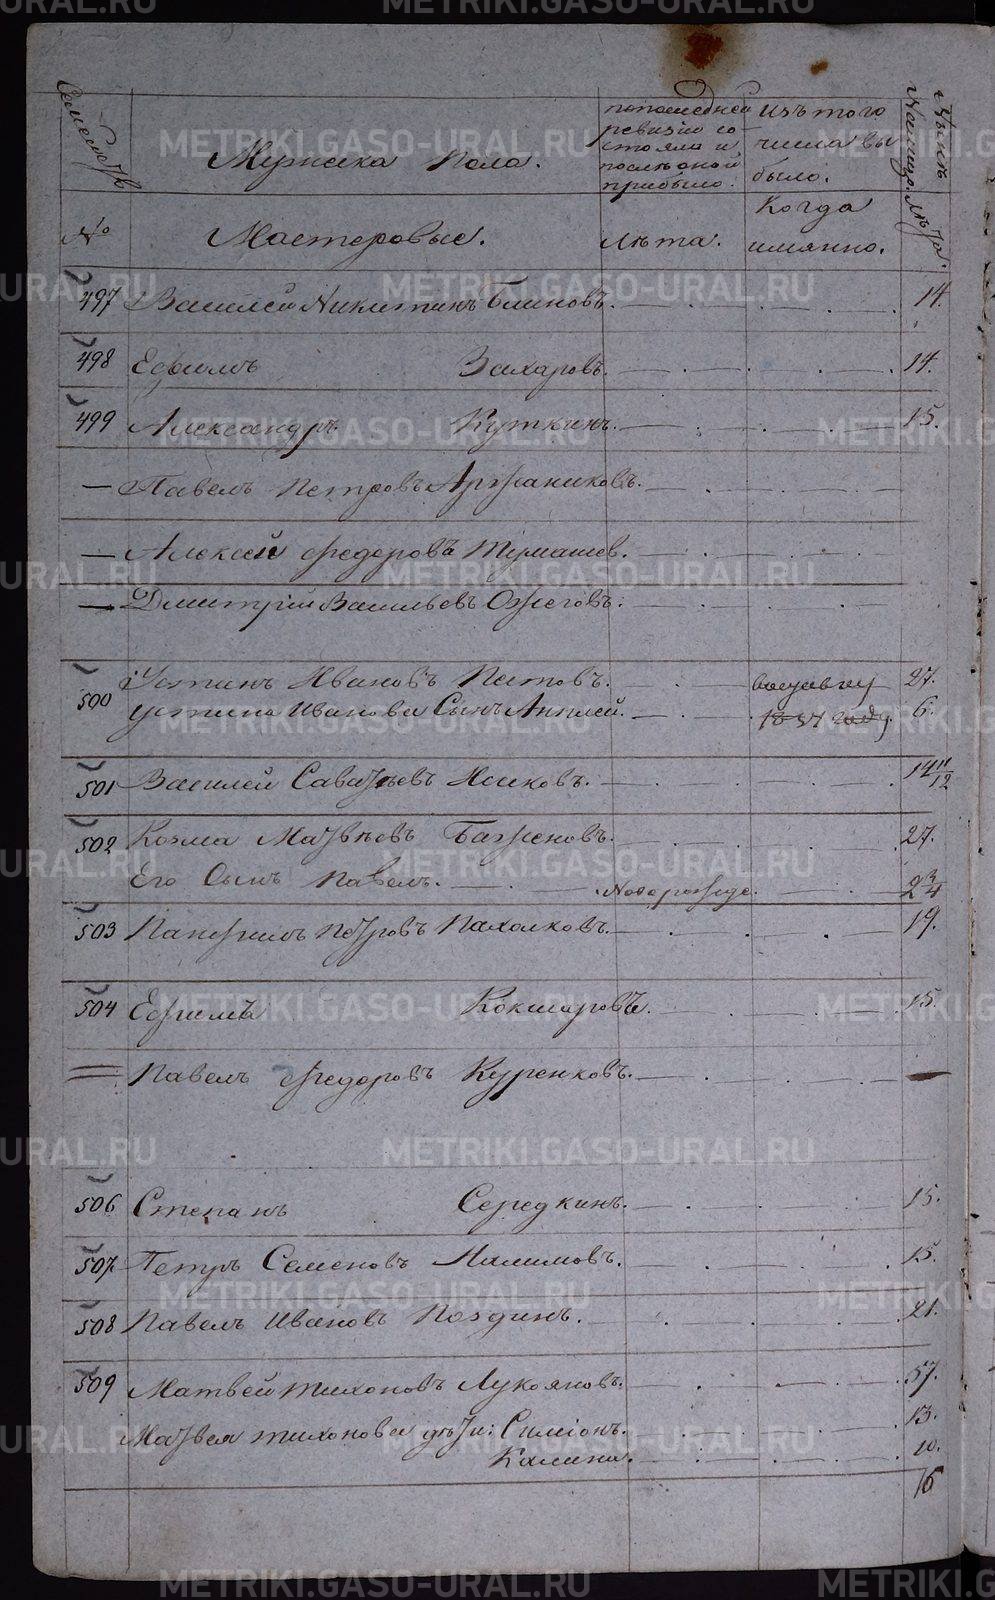 Семейств
Мужеска пола.
по последней ревизии состояли и после оной прибыло.
изъ того числа выбыло.
Ныне налицо.
№
Мастеровые.
лѣта.
когда имянно.
лѣта.
497 Василей Никитинъ Блиновъ. 14.
498 Ефимъ Захаровъ. 14.
499 Александръ Куткинъ. 15.
— Павелъ Петровъ Аржаниковъ.
— Алексей Федоровъ Тумашев.
— Дмитрiй Васильевъ Ожеговъ.
500 Устинъ Ивановъ Пестовъ. 27.
Устина Иванова Сынъ 6.
1834 году.
501 Василей Саватѣевъ 14 11/12
502 Козма Матвѣевъ Баженовъ. 27.
Его Сынъ Павелъ. Новорожде. 2 3/4
503 Петровъ Пахолковъ. 19.
504 Ефимъ Кокшаровъ. 15.
Павелъ Федоровъ Куренковъ. —
506 Степанъ Середкинъ. 15.
507 Петръ Семеновъ Налимовъ. 15.
508 Павелъ Ивановъ Поздинъ. 21.
509 Матвей Тихоновъ Лукояновъ. 57.
Матвея Тихонова дѣти: Симiонъ. 13.
Калина. 10.
16
METRIKI.GASO-URAL.RU